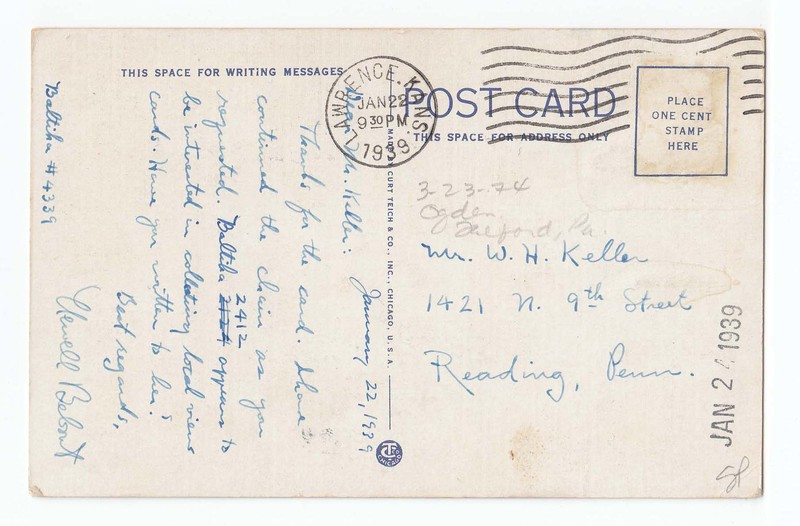 THIS SPACE FOR WRITING MESSAGES
LAWRENCE, KANS.
JAN 22
9 30 PM
1939
POST CARD
THIS SPACE FOR ADDRESS ONLY
PLACE
ONE CENT
STAMP
HERE
MADE BY CURT TEICH & CO., INC., CHICAGO, U.S.A.
January 22, 1939
Dear Mr. Keller:
Thanks for the card. I have
continued the chain as you
2412
requested. Baltiha 2124 appears to
be interested in collecting local view
cards. Have you written to her?
Best regards,
Newell
Baltiha # 4339
3-23-74
Ogden
Telford, Pa.
Mr. W. H. Keller
1421 N. 9th Street
Reading, Penn.
JAN 2 1939
CHICAGO